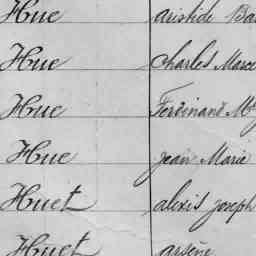 Hue aristide Ba
Hue Charles Marce
Hue Ferdinand
Hue jean Marie
Huet alexis joseph
Huet arsène